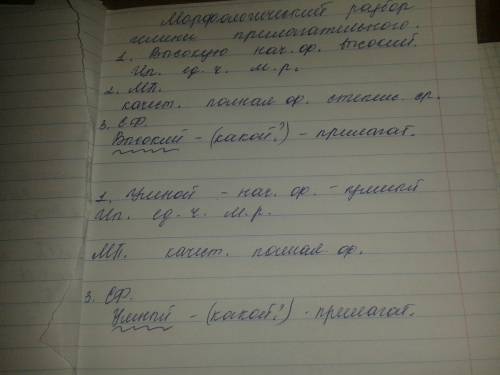 Морфологический разбор
имени прилагательного.
1. Высокую нач. ф. высокий.
Ип. ед. ч. м. р.
2. МП.
качест. полная ф. степень ср.
3. СФ.
Высокий - (какой?) - прилагат.
1. Умной - нач. ф. - умный
Ип. ед. ч. м. р.
МП. качест. полная ф.
3. СФ.
Умный - (какой?) - прилагат.